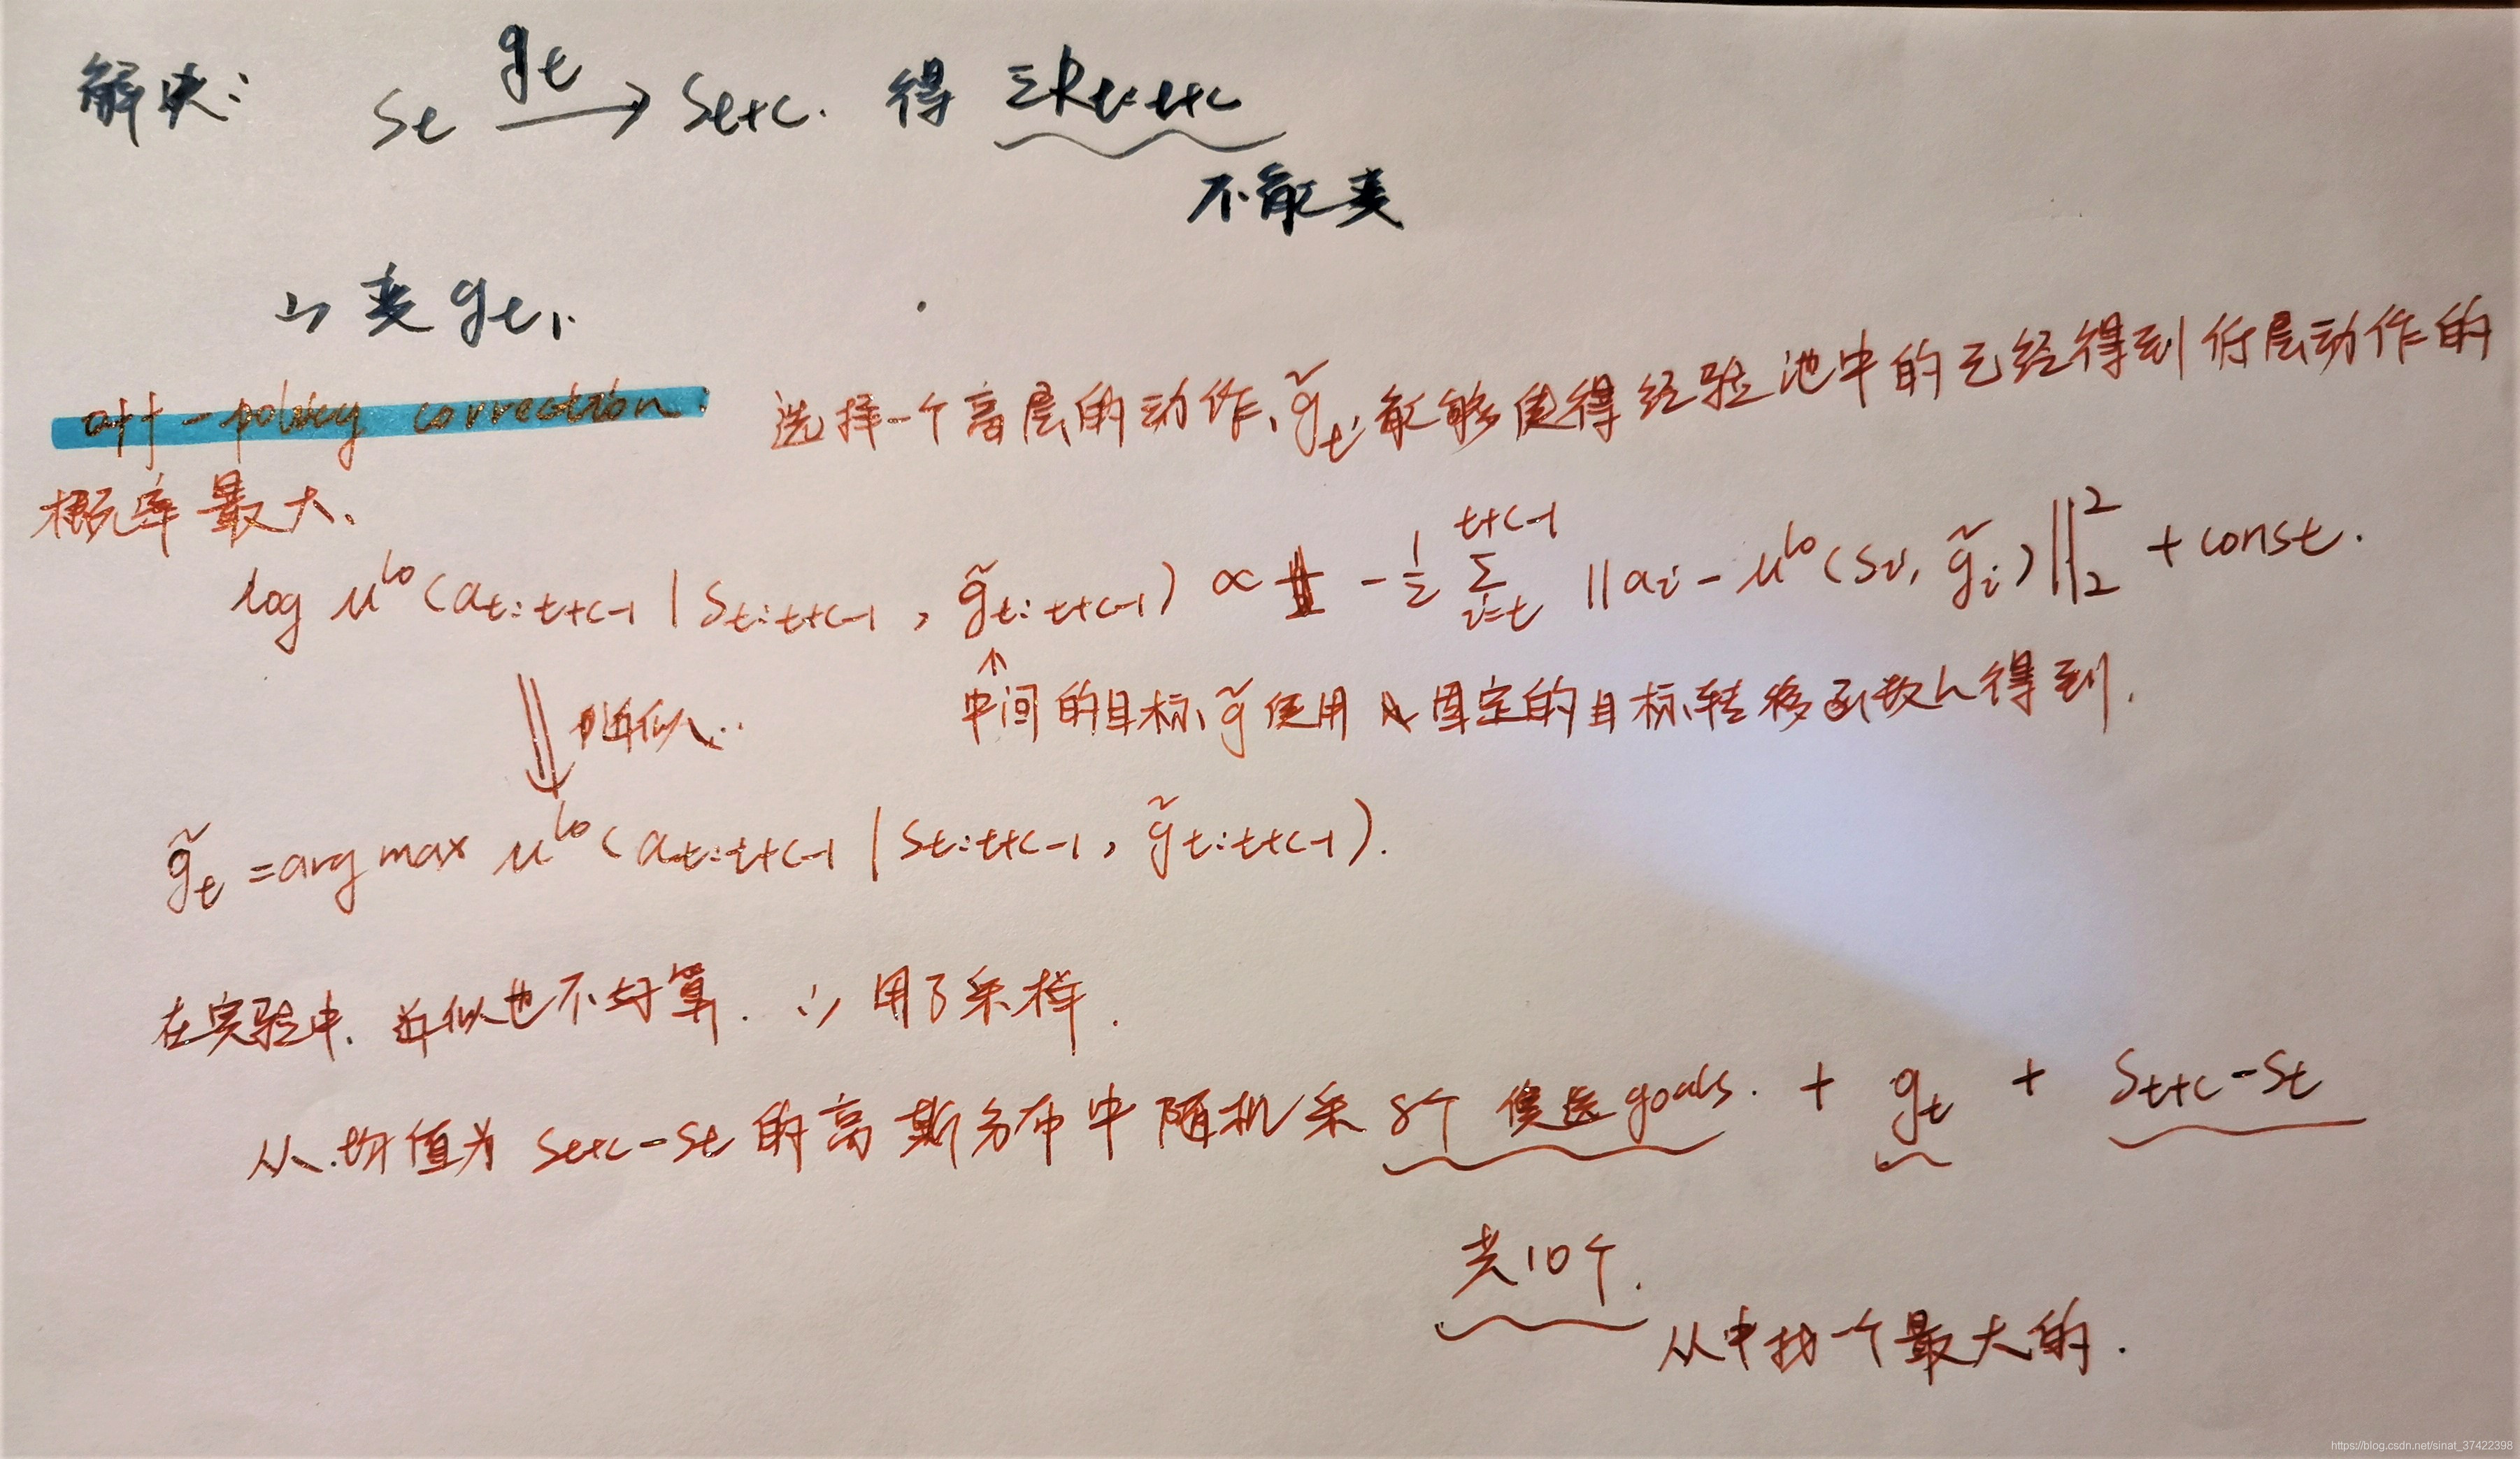 解决: St gt→ St+c. 得 ΣRt:t+c
不能变
↳ 变gt.
off-policy correction: 选择一个高层的动作, g̃t, 能够使得经验池中的已经得到低层动作的
概率最大.
log μ^lo(at:t+c-1 | St:t+c-1, g̃t:t+c-1) ∝ -1/2 Σ_{i=t}^{t+c-1} ||ai - μ^lo(si, g̃i)||₂² + const.
↑
⇓ 近似.. 中间的目标, g̃ 使用 固定的目标转移函数h得到.
g̃t = arg max μ^lo(at:t+c-1 | St:t+c-1, g̃t:t+c-1).
在实验中, 近似也不好算. ∴ 用了采样.
从均值为 St+c-St 的高斯分布中随机采 8个 候选goals. + gt + St+c-St
共10个.
从中找一个最大的.
https://blog.csdn.net/sinat_37422398